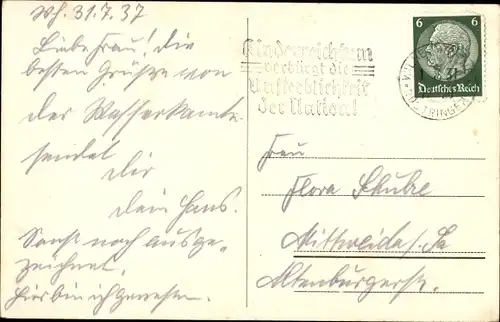 Wh. 31.7.37
Liebe Frau! Die
besten Grüße von
der Wasserkante
sendet
Dir
Dein Hans.
Sonst noch ausge-
zeichnet.
Hier bin ich gewesen.
Kinderreichtum
verbürgt die
Unsterblichkeit
der Nation!
6 6
Deutsches Reich
Frau
Flora Schulze
Mittweida/Sa
Altenburgerstr.